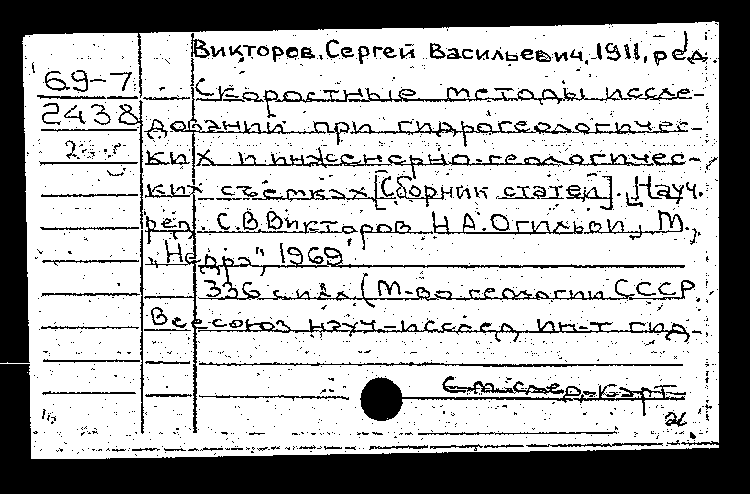 Викторов, Сергей Васильевич, 1911, ред.
69-7
2438
Скоростные методы иссле-
дований при гидрогеологичес-
ких и инженерно-геологичес-
ких съёмках [Сборник статей]. Науч.
ред. С.В.Викторов Н.А.Огильви, М.,
„Недра", 1969
336 с. илл. (М-во геологии СССР.
Всесоюз науч-исслед. ин-т гид-
См. след. карт